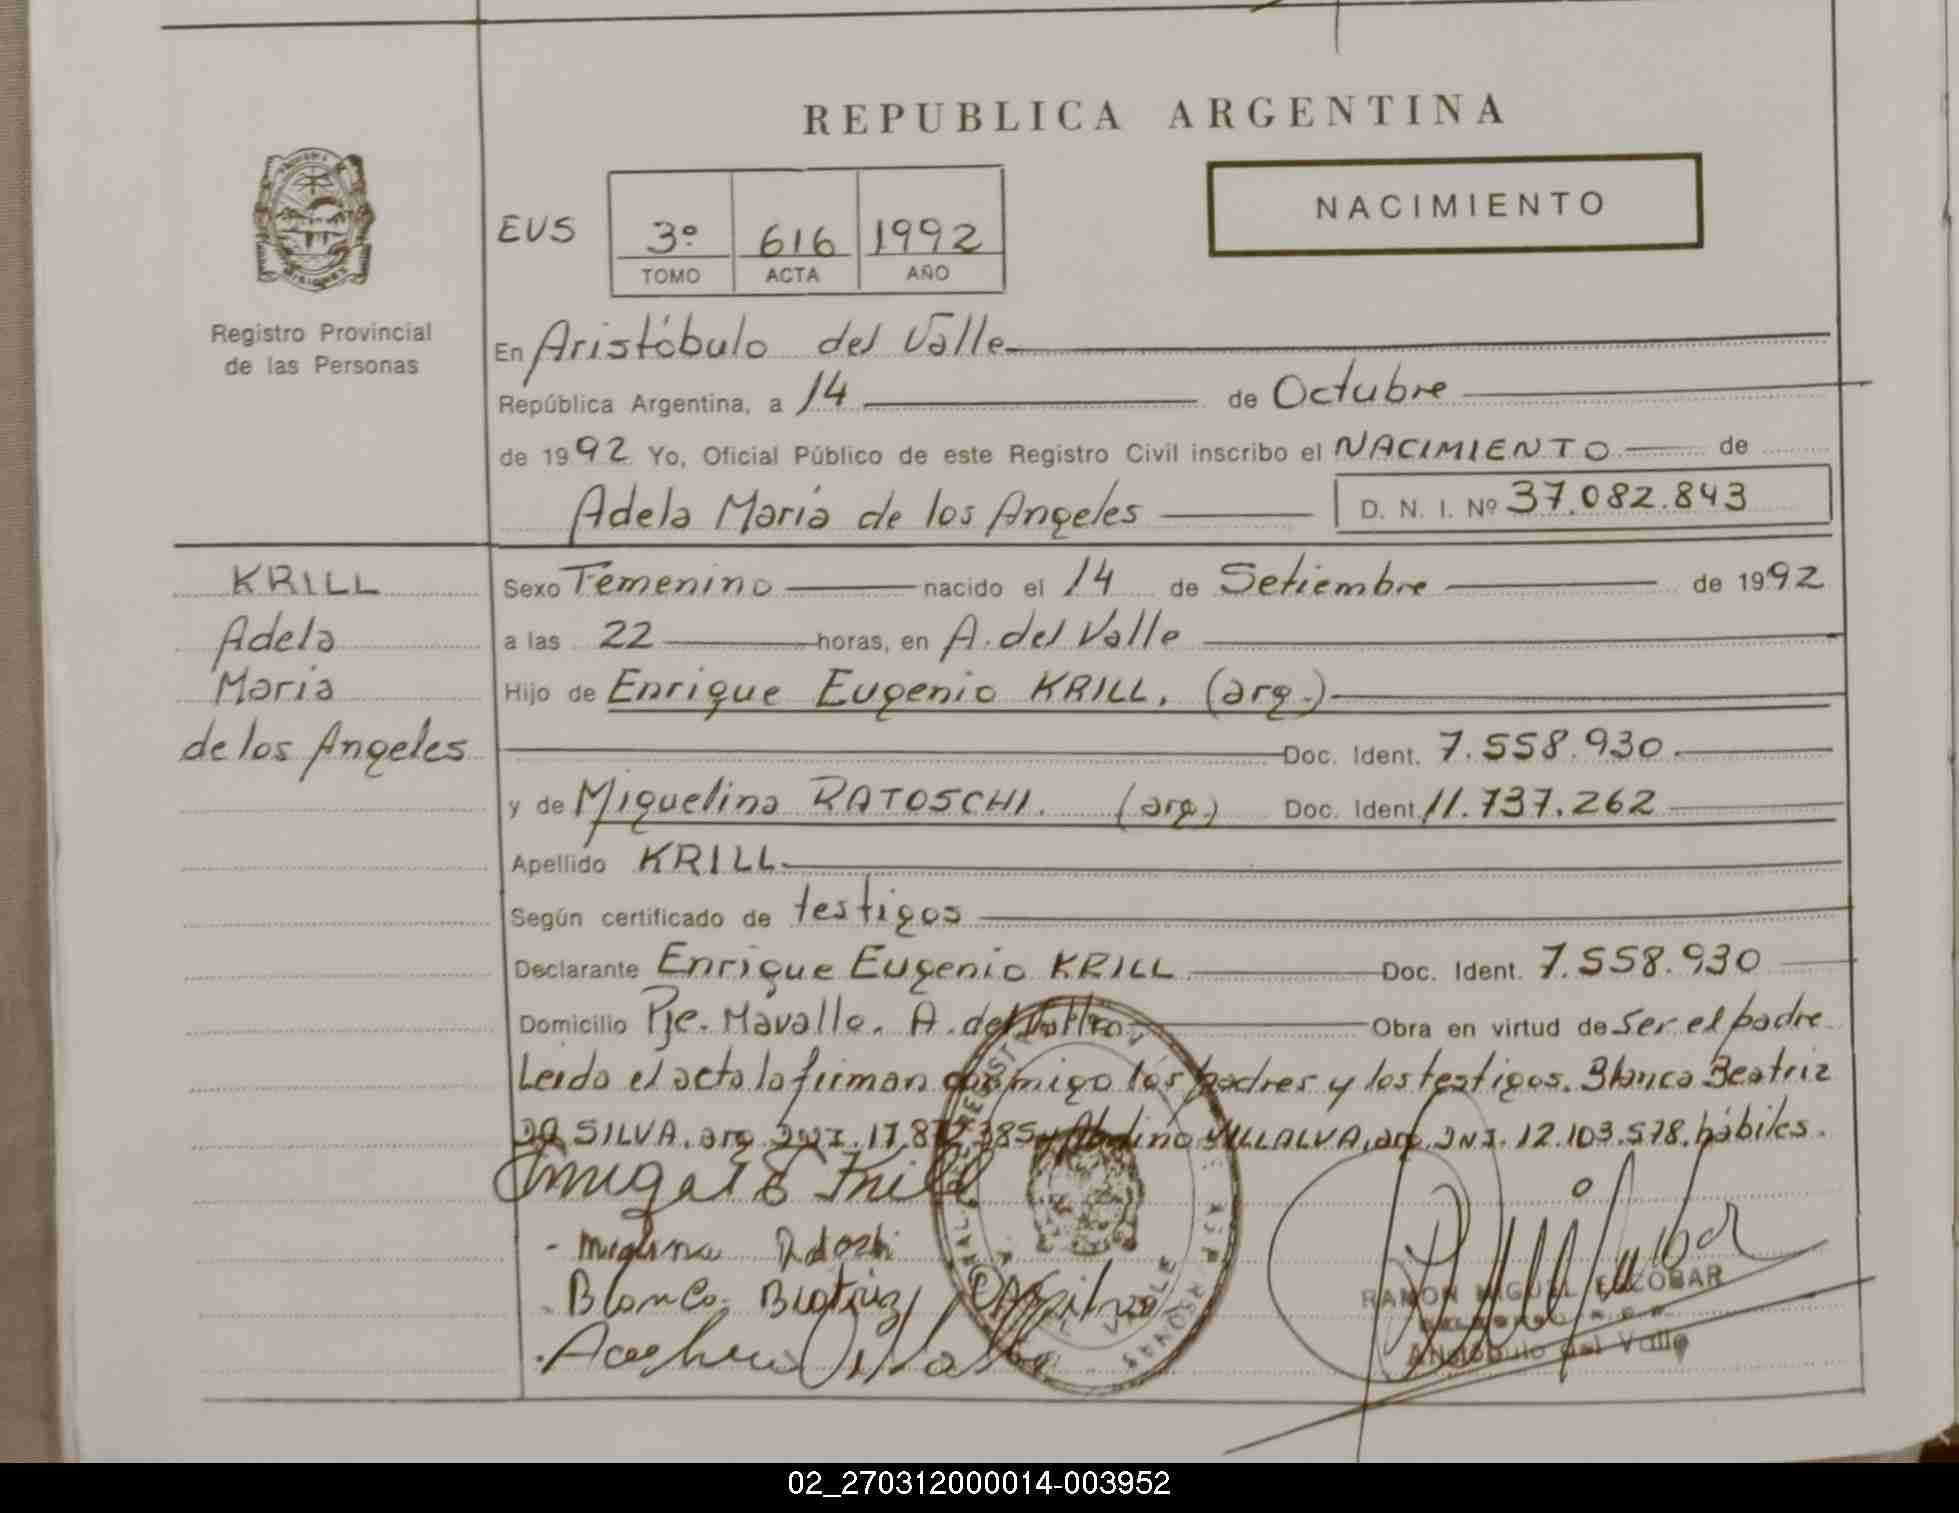 REPUBLICA ARGENTINA
NACIMIENTO
EUS 3º 616 1992
TOMO ACTA AÑO
Registro Provincial
de las Personas
En Aristóbulo del Valle
República Argentina, a 14 de Octubre
de 1992 Yo, Oficial Público de este Registro Civil inscribo el NACIMIENTO de
Adela María de los Angeles D. N. I. Nº 37.082.843
KRILL
Adela
Maria
de los Angeles
Sexo Femenino nacido el 14 de Setiembre de 1992
a las 22 horas, en A. del Valle
Hijo de Enrique Eugenio KRILL. (arg.)
Doc. Ident. 7.558.930
y de Miguelina RATOSCHI. (arg.) Doc. Ident. 11.737.262
Apellido KRILL
Según certificado de testigos
Declarante Enrique Eugenio KRILL Doc. Ident. 7.558.930
Domicilio Pje. Mavalle. A. del Valle Obra en virtud de Ser el padre
Leida el acta la firman conmigo los padres y los testigos. Blanca Beatriz
DA SILVA. arg. DNI. 17.8 385 y VILLALVA, arg. DNI. 12.103.578. hábiles.
Blanca Beatriz
RAMON MIGUEL ESCOBAR
Aristóbulo del Valle
02_270312000014-003952